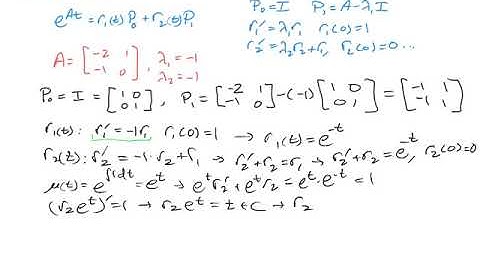 e^{At} = r₁(t) P₀ + r₂(t) P₁
P₀ = I P₁ = A - λ₁I
r₁' = λ₁r₁ r₁(0) = 1
r₂' = λ₂r₂ + r₁ r₂(0) = 0 ...
A = [-2 1; -1 0], λ₁ = -1
λ₂ = -1
P₀ = I = [1 0; 0 1], P₁ = [-2 1; -1 0] - (-1) [1 0; 0 1] = [-1 1; -1 1]
r₁(t): r₁' = -1r₁ r₁(0) = 1 → r₁(t) = e^{-t}
r₂(t): r₂' = -1·r₂ + r₁ → r₂' + r₂ = r₁ → r₂' + r₂ = e^{-t}, r₂(0) = 0
μ(t) = e^{∫1dt} = e^t → e^t r₂' + e^t r₂ = e^t · e^{-t} = 1
(r₂e^t)' = 1 → r₂e^t = t + C → r₂